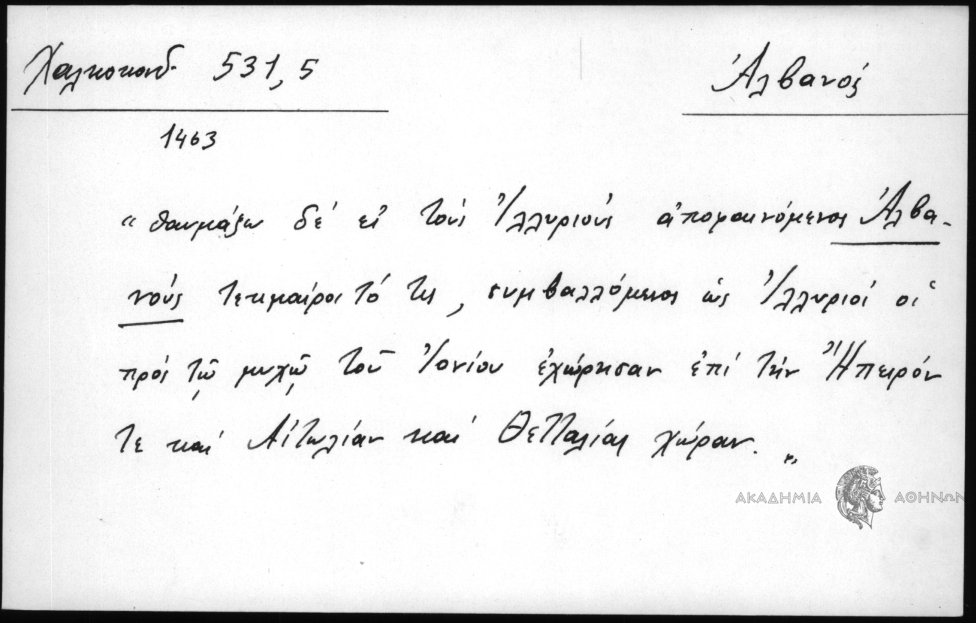 Χαλκοκονδ. 531,5
Ἀλβανός
1463
"θαυμάζω δέ εἰ τούς Ἰλλυριούς ἀπομαινόμενος Ἀλβα-
νούς τεκμαίροιτό τις, συμβαλλόμενος ὡς Ἰλλυριοί οἱ
πρός τῷ μυχῷ τοῦ Ἰονίου ἐχώρησαν ἐπί τήν Ἤπειρόν
τε καί Αἰτωλίαν καί Θετταλίας χώραν."
ΑΚΑΔΗΜΙΑ ΑΘΗΝΩΝ